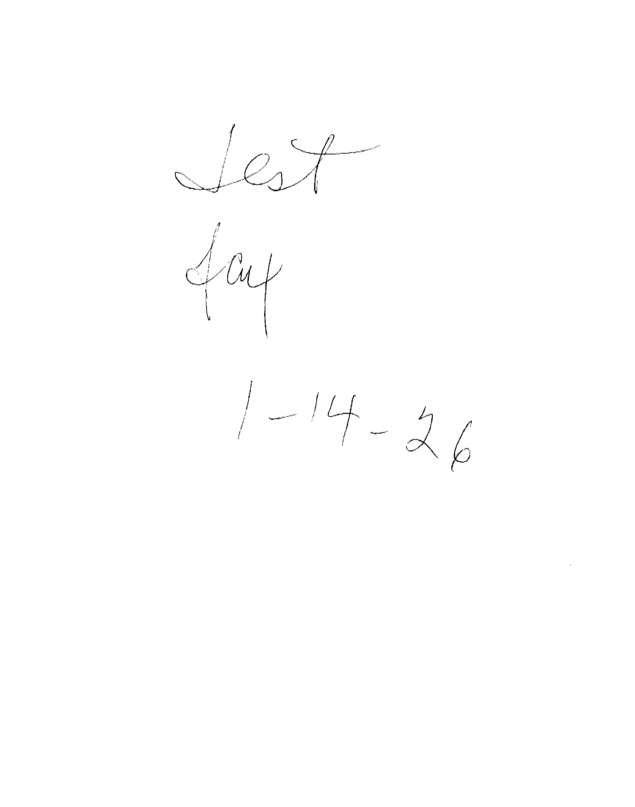 Test
fax
1-14-26